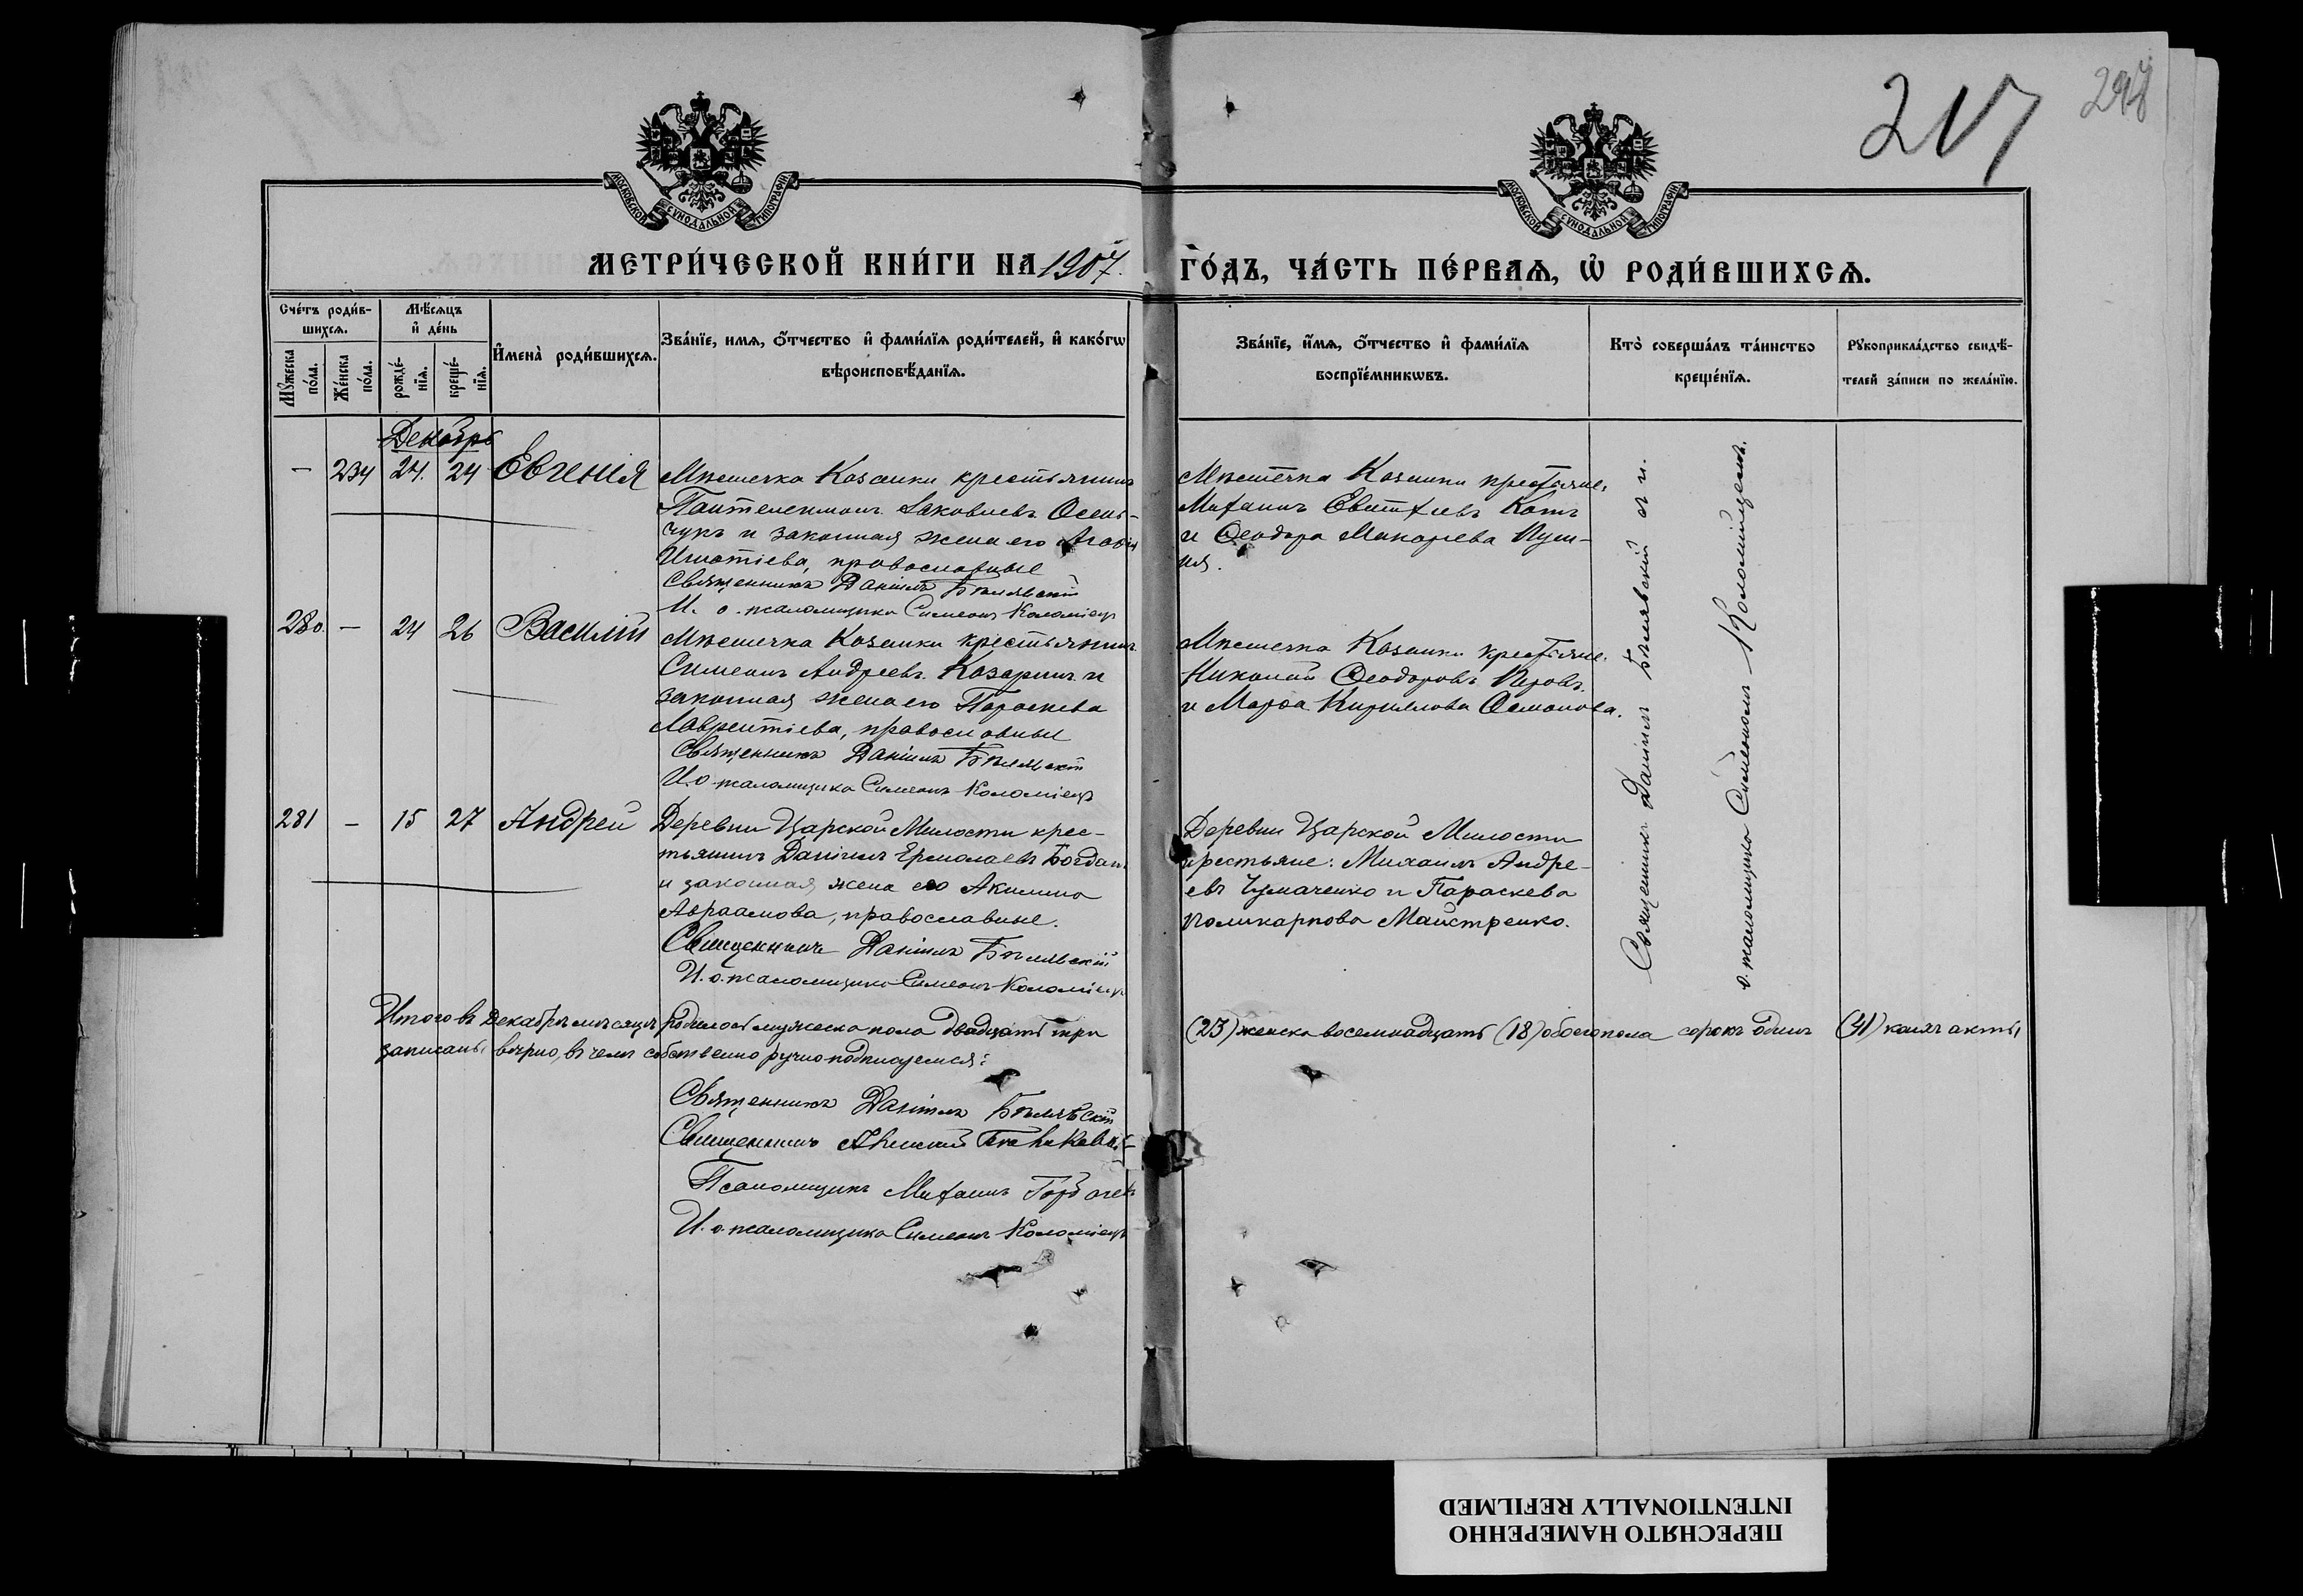 217
248
МОСКОВСКОЙ СѴНОДАЛЬНОЙ ТИПОГРАФІИ
МОСКОВСКОЙ СѴНОДАЛЬНОЙ ТИПОГРАФІИ
МЕТРИ́ЧЕСКОЙ КНИ́ГИ НА 1907.
ГО́ДЪ, ЧА́СТЬ ПЕ́РВАѦ, Ѡ҆ РОДИ́ВШИХСѦ.
Сче́тъ роди́в-
шихсѧ.
Мꙋ́жеска
по́ла.
Же́нска
по́ла.
Мѣ́сѧцъ
и҆ де́нь
рожде́-
нїѧ.
креще́-
нїѧ.
И҆мена̀ роди́вшихсѧ.
Зва́нїе, имѧ, ѻ҆́тчество и҆ фами́лїѧ роди́телей, и҆ како́гѡ
вѣроисповѣ́данїѧ.
Зва́нїе, и҆́мѧ, ѻ҆́тчество и҆ фами́лїѧ
воспрїе́мникѡвъ.
Кто̀ соверша́лъ та́инство
креще́нїѧ.
Рꙋкоприкла́дство свидѣ́-
телей за́писи по жела́нїю.
Декабрь
— 234 24. 24 Евгенія
Мѣстечка Козанки крестьянинъ
Пантелеимонъ Іаковлевъ Осень-
чукъ и законная жена его Агафія
Игнатіева, православные
Священникъ Даніилъ Бѣлявскій
И. о. псаломщика Симеонъ Коломіецъ
Мѣстечка Козанки крестьяне:
Михаилъ Евтихіевъ Котъ
и Ѳеодора Макарьева
280. — 24 26 Василій
Мѣстечка Козанки крестьянинъ
Симеонъ Андреевъ Козаринъ и
законная жена его Параскева
Лаврентіева, православные
Священникъ Даніилъ Бѣлявскій
И. о. псаломщика Симеонъ Коломіецъ
Мѣстечка Козанки крестьяне:
Николай Ѳеодоровъ
и Марѳа Кириллова Османова.
281 — 15 27 Андрей
Деревни Царской Милости крес-
тьянинъ Даніилъ Ермолаевъ Богданъ
и законная жена его Акилина
Авраамова, православные.
Священникъ Даніилъ Бѣлявскій
И. о. псаломщика Симеонъ Коломіецъ
Деревни Царской Милости
крестьяне: Михаилъ Андре-
евъ Чумаченко и Параскева
Поликарпова Майстренко.
Священникъ Даніилъ Бѣлявскій съ и.
о. псаломщика Симеономъ Коломійцемъ.
Итого въ Декабрѣ мѣсяцѣ родилось мужеска пола двадцать три (23) женска восемнадцать (18) обоего пола сорокъ одинъ (41) каяхъ акты
записаны вѣрно, въ чемъ собственно ручно подписуемся:
Священникъ Даніилъ Бѣлявскій
Священникъ
Псаломщикъ Михаилъ
И. о. псаломщика Симеонъ Коломіецъ
ПЕРЕСНЯТО НАМЕРЕННО
INTENTIONALLY REFILMED